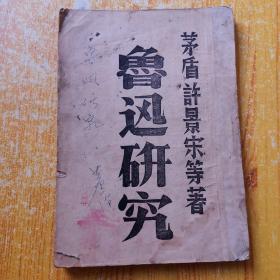 茅盾 許景宋等著
魯迅研究